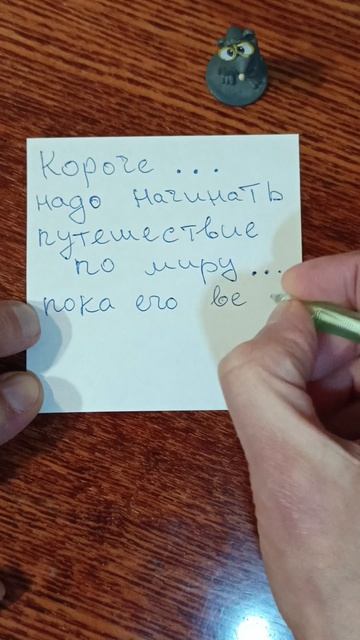 Короче ...
надо начинать
путешествие
по миру...
пока его ве